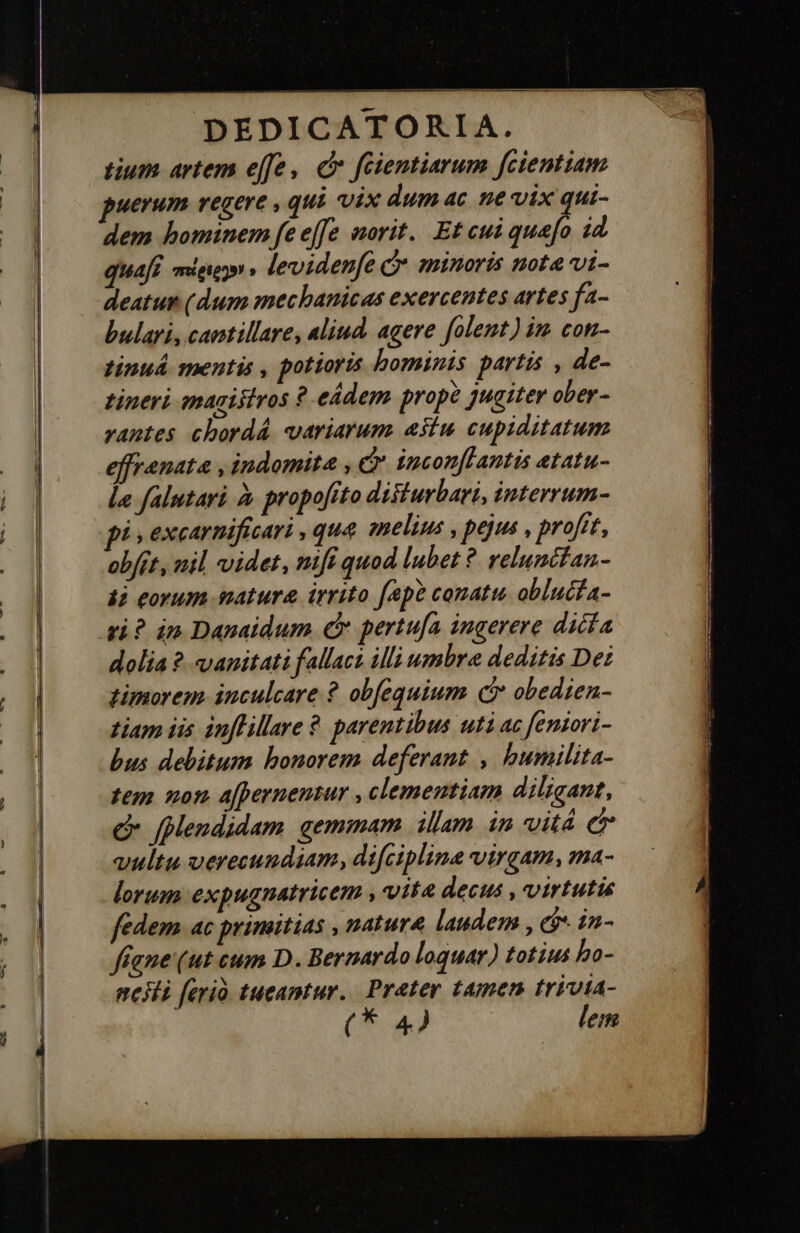 DEDICATORIA.
tium artem eſſe, & ſcientiarum ſcientiam
puerum regere, qui vix dum ac ne vix qui-
dem hominem ſe eſſe norit. Et cui quæſo id
quaſi πάρεργον, levidenſe & minoris notæ vi-
deatur (dum mechanicas exercentes artes fa-
bulari, cantillare, aliud agere ſolent) in con-
tinuâ mentis, potioris hominis partis, de-
tineri magiſtros? eâdem propè jugiter ober-
rantes chordâ variarum æſtu cupiditatum
effrænatæ, indomitæ, & inconſtantis ætatu-
læ ſalutari à propoſito diſturbari, interrum-
pi, excarnificari, quæ melius, pejus, proſit,
obſit, nil videt, niſi quod lubet? relunctan-
ii eorum naturæ irrito ſæpè conatu oblucta-
ri? in Danaidum & pertuſa ingerere dicta
dolia? vanitati fallaci illi umbræ deditis Dei
timorem inculcare? obſequium & obedien-
tiam iis inſtillare? parentibus uti ac ſeniori-
bus debitum honorem deferant, humilita-
tem non aſpernentur, clementiam diligant,
& ſplendidam gemmam illam in vitâ &
vultu verecundiam, diſciplinæ virgam, ma-
lorum expugnatricem, vitæ decus, virtutis
ſedem ac primitias, naturæ laudem, & in-
ſigne (ut cum D. Bernardo loquar) totius ho-
neſti ſeriò tueantur. Præter tamen trivia-
(* 4) lem